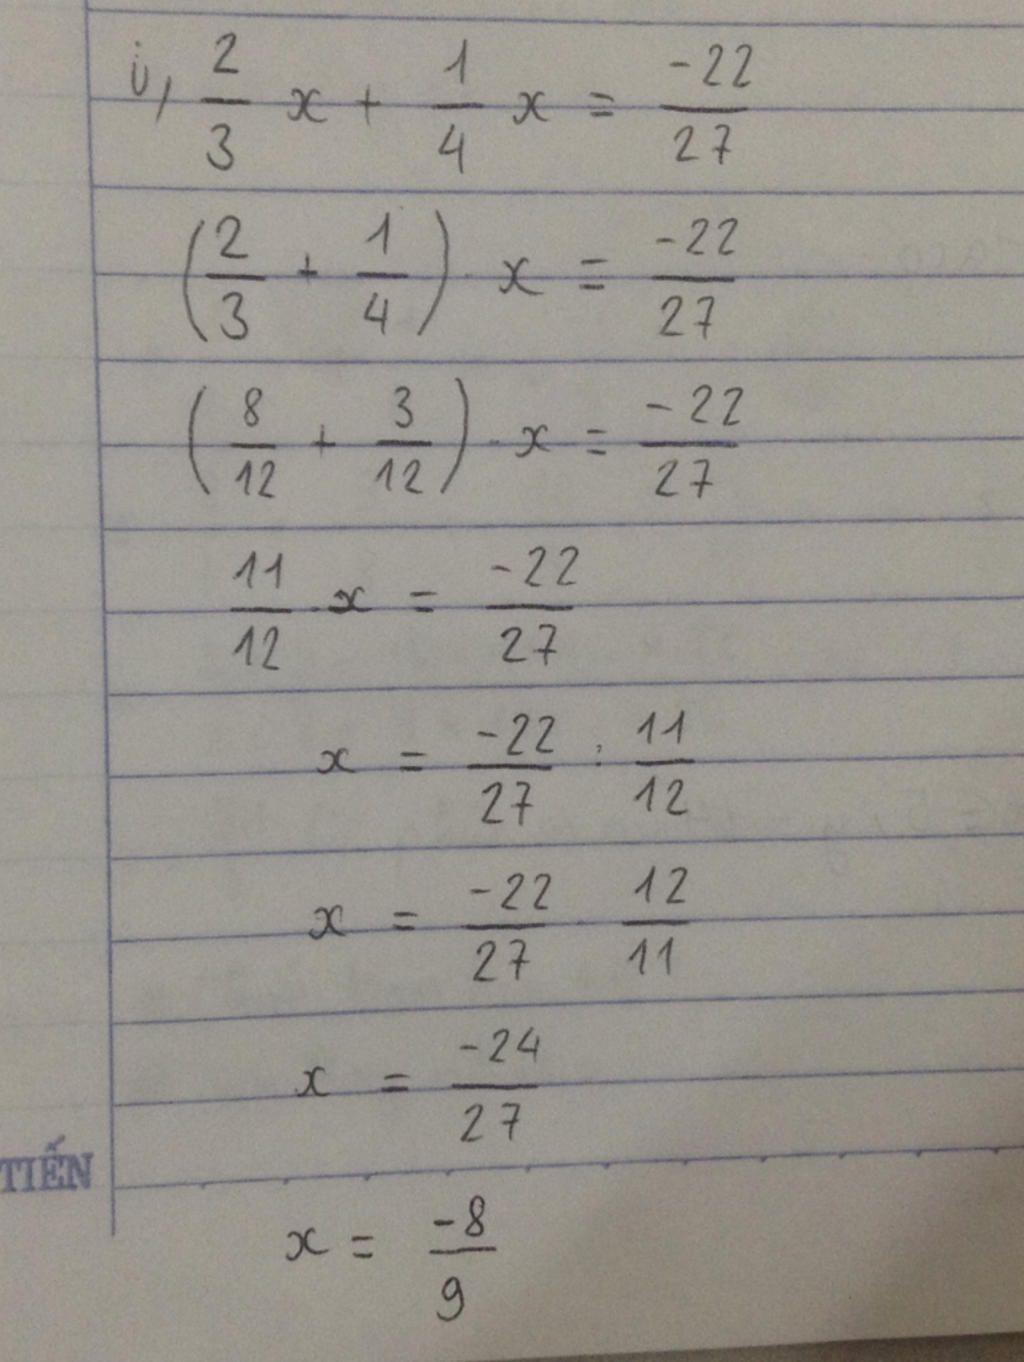 i, 2/3 x + 1/4 x = -22/27
(2/3 + 1/4) · x = -22/27
(8/12 + 3/12) · x = -22/27
11/12 · x = -22/27
x = -22/27 : 11/12
x = -22/27 · 12/11
x = -24/27
TIẾN
x = -8/9